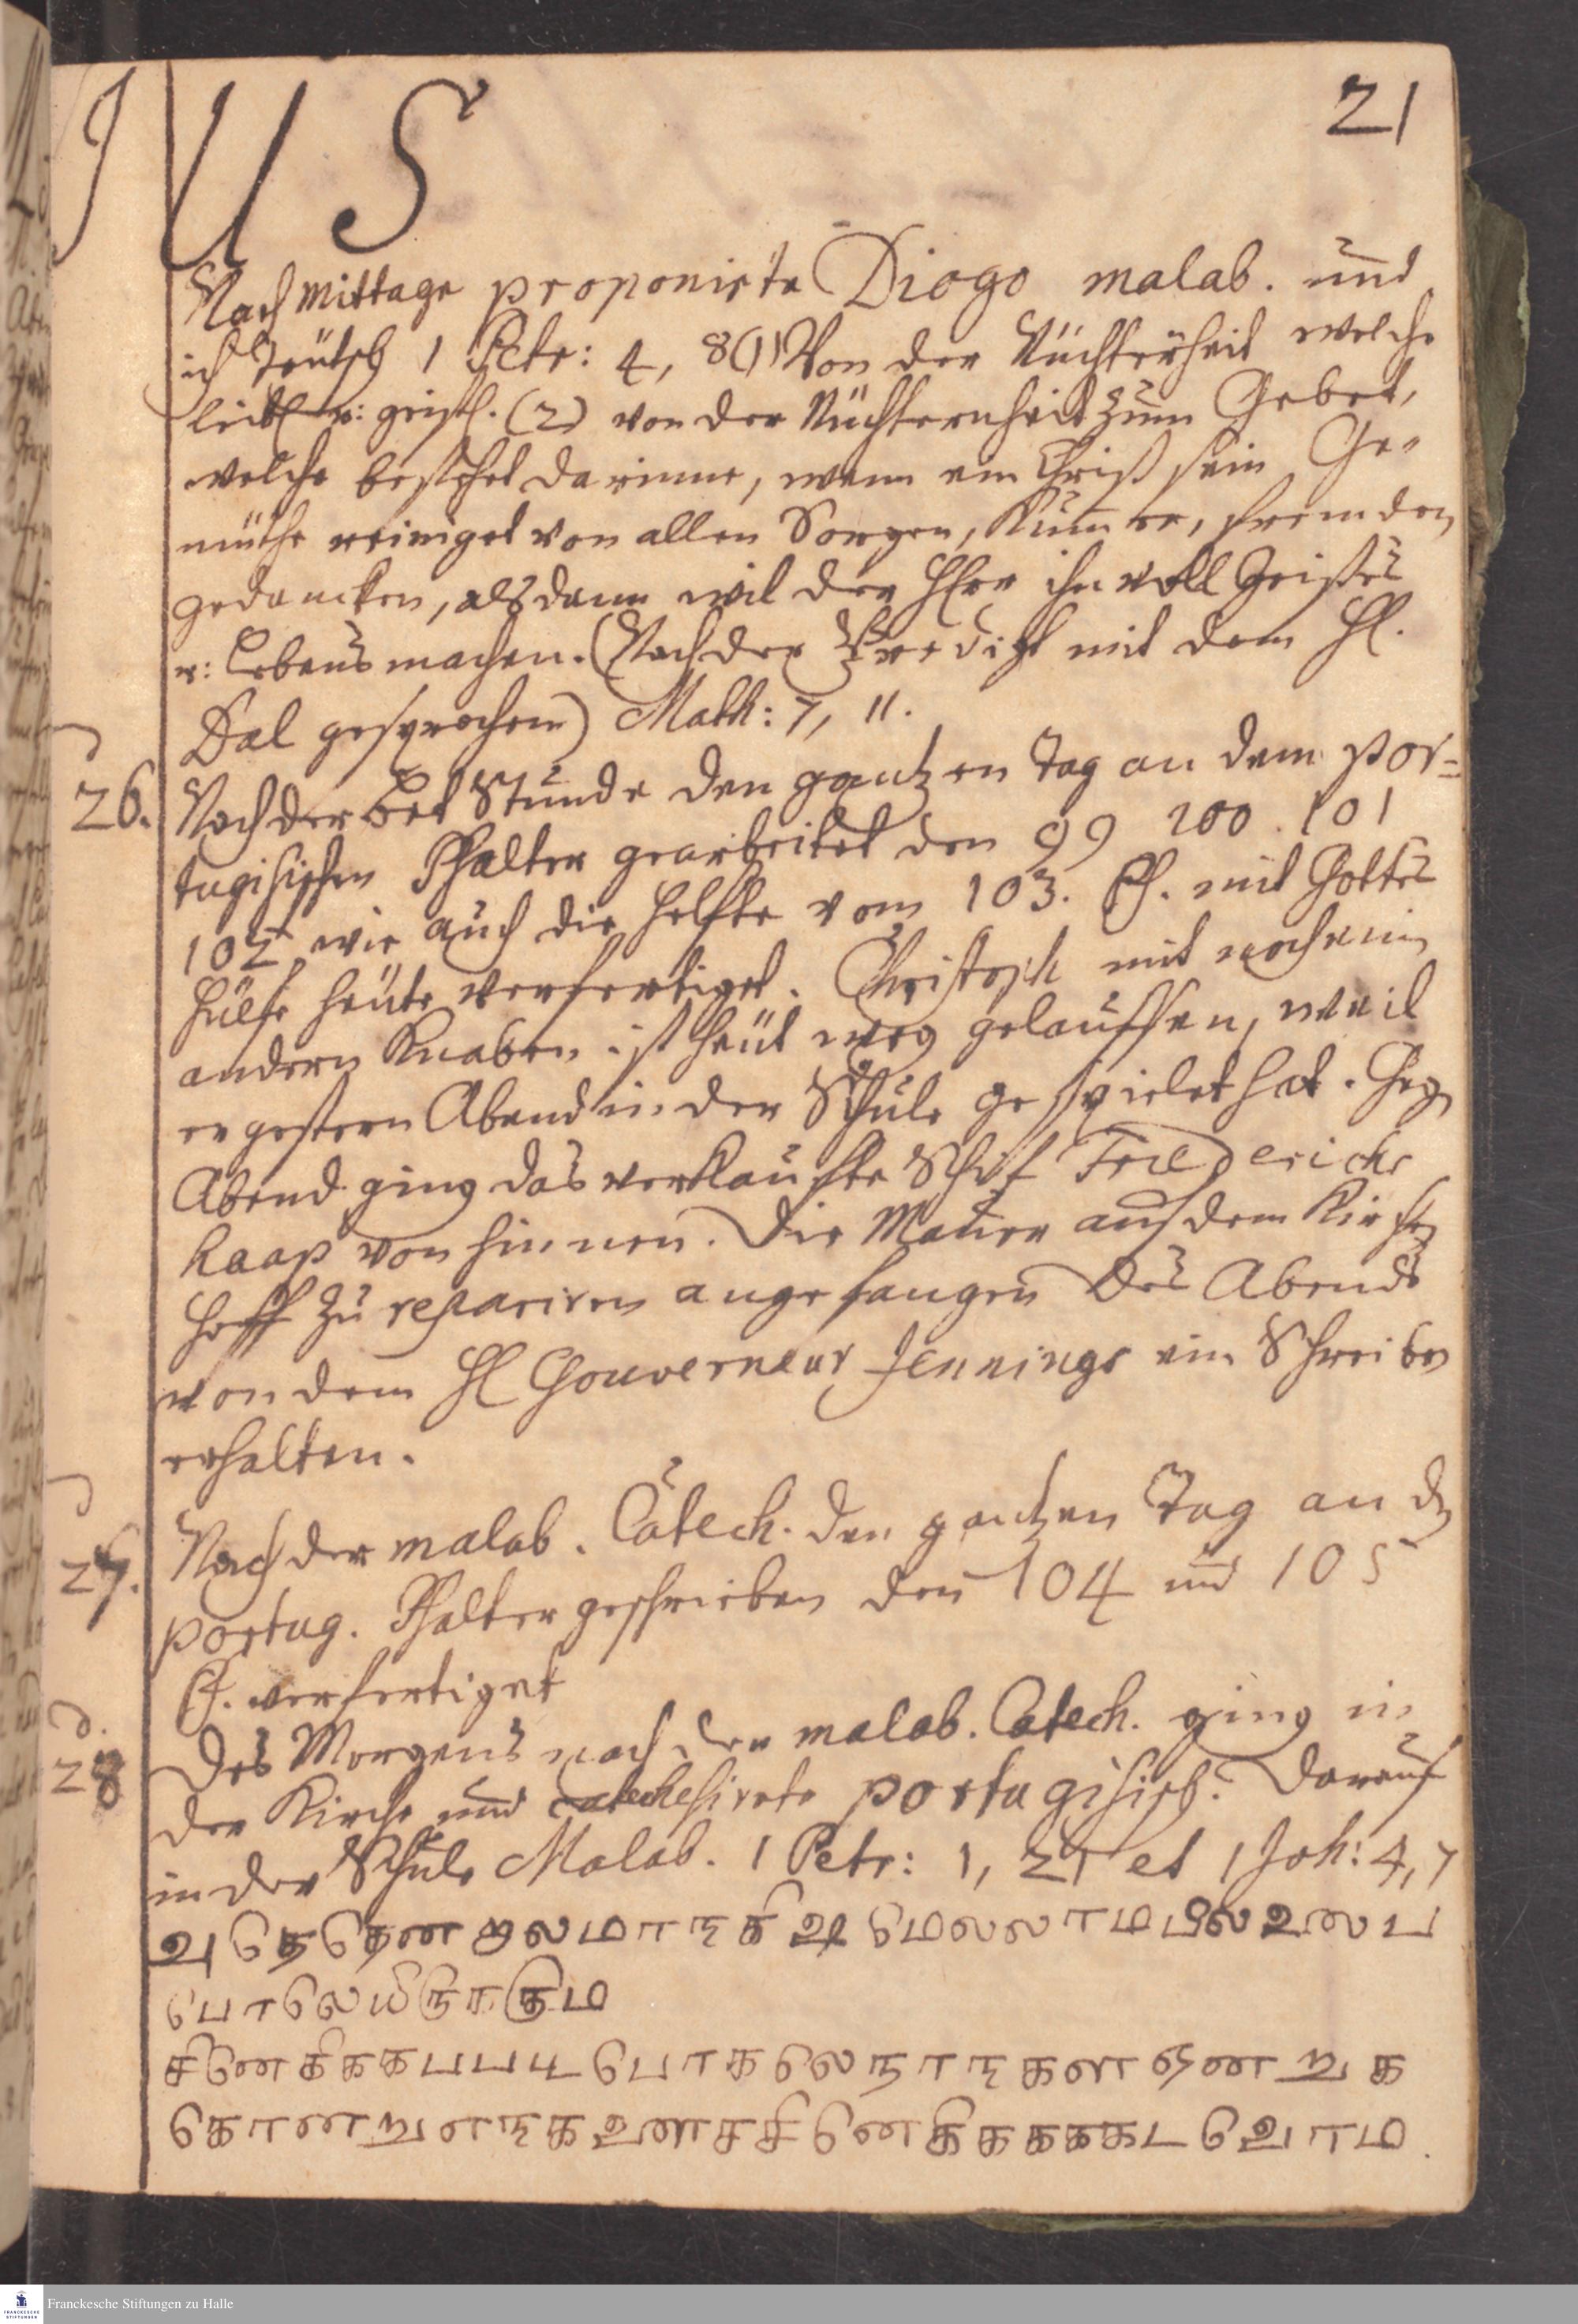 I U S
21
Nachmittage proponirte Diogo malab. und
ich Teütsch 1 Petr: 4, 8 (1) Von der Nüchterheit welche
leibl u: geistl. (2) von der Nüchternheit zum Gebet,
welche bestehet darinne, wenn ein Christ sein Ge-
müthe reiniget von allen Sorgen, Kum̄er, fremden
gedancken, alsdann wil der HErr ihn voll Geistes
u: Lebens machen. (Nach der Predigt mit dem Hl.
Dal gesprochen) Math: 7, 11.
d
26. Nach der Bet Stunde den gantzen Tag an dem por=
tugisischen Psalter gearbeitet den 99 100. 101
102 wie auch die helfte vom 103. Ps. mit Gottes
hülfe heüte verfertiget. Christoph mit noch ein
andern Knaben ist heüt weg gelauffen, weil
er gestern Abend in der Schule gespielet hat. Geg
Abend ging das verkaufte Schif Friederichs
von hinnen. Die Mauer auf dem Kirch
hoff zu repariren angefangen Des Abends
von dem Hl Gouverneur Jennings ein Schreiben
erhalten.
d
27. Nach der malab. Catech. den gantzen Tag an d
portug. Psalter geschrieben den 104 und 105
Ps. verfertiget
d.
28 Des Morgens nach der malab. Catech. ging in
der Kirche und catechesirete portugisisch. Darauf
in der Schule Malab. 1 Petr: 1, 21 et 1 Joh: 4, 7
பொலெயிருநகும
சினெகிககபபட பொகலெநாஙகள